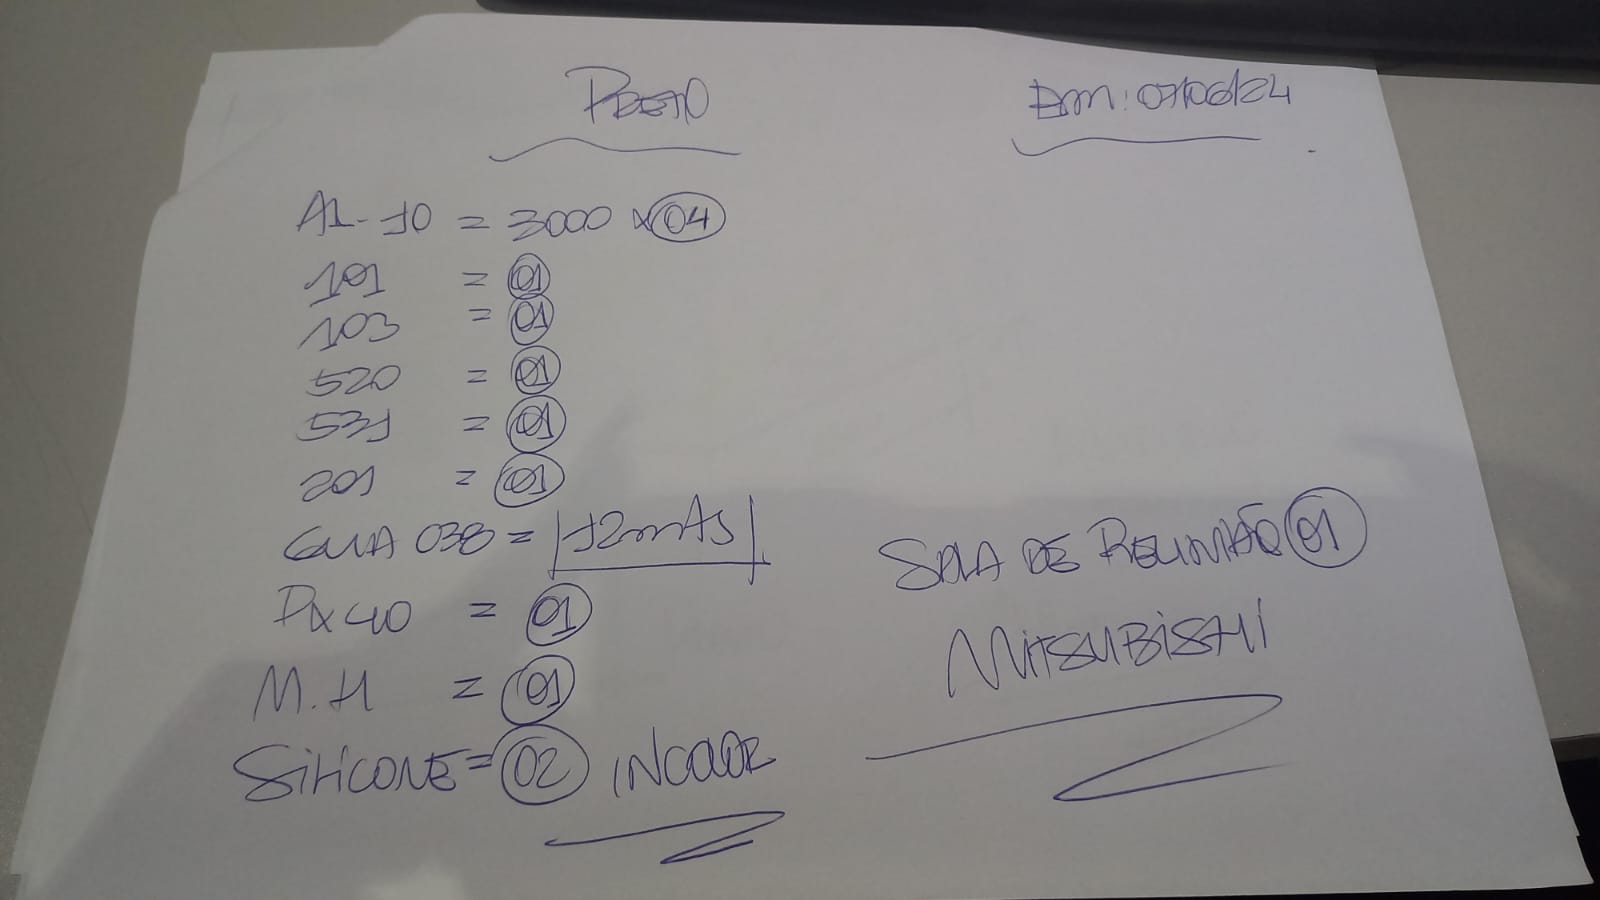 PRETO
EM: 07/06/24
AL-10 = 3000 x 04
101 = 01
103 = 01
520 = 01
531 = 01
201 = 01
GUIA 038 = 12mts
PX40 = 01
M.H = 01
SILICONE = 02 INCOLOR
SALA DE REUNIÃO 01
MITSUBISHI